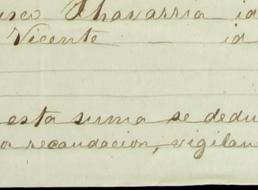 isco Chavarria id
Vicente — id
esta suma se dedu
a recaudacion, vigilan